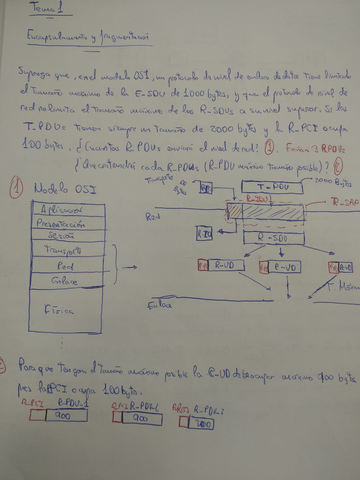 Tema 1
Encapsulamiento y fragmentación
Suponga que, en el modelo OSI, un protocolo de nivel de enlace de datos tiene limitado
el tamaño máximo de la E-SDU de 1000 bytes, y que el protocolo de nivel de
red no limita el tamaño máximo de las R-SDUs a su nivel superior. Si las
T-PDUs tienen siempre un tamaño de 2000 bytes y la R-PCI ocupa
100 bytes. ¿Cuántas R-PDUs enviará el nivel de red? ①. 3 R-PDUs
¿Que contendrá cada R-PDUs (R-PDU máximo tamaño posible)? ②
① Modelo OSI
Aplicación
Presentación
Sesión
Transporte
Red
Enlace
Física
T-PDU
2000 Bytes
R-IDU
R-SAP
Red
R-SDU
R-UD
R-UD
R-UD
Enlace
Para que tengan el tamaño máximo posible la R-UD debe ocupar máximo 900 bytes
pues la R-PCI ocupa 100 bytes.
R-PCI R-PDU-1
R-PDU-2
900
900
200